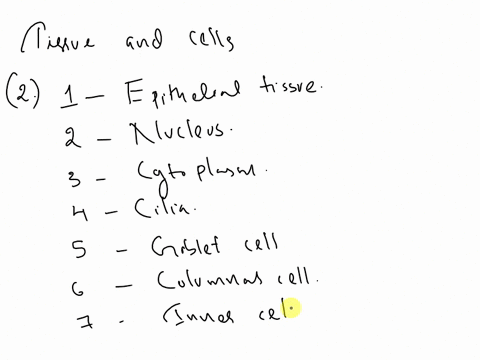 Tissue and cells
(2) 1 - Epithelial tissue.
2 - Nucleus.
3 - Cytoplasm.
4 - Cilia.
5 - Goblet cell
6 - Columnar cell.
7 - Inner cel